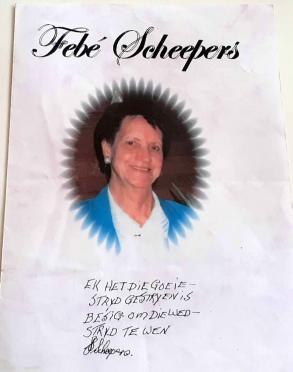 Febé Scheepers
EK HET DIE GOEIE –
STRYD GESTRY EN IS
BESIG OM DIE WED –
STRYD TE WEN
Scheepers.